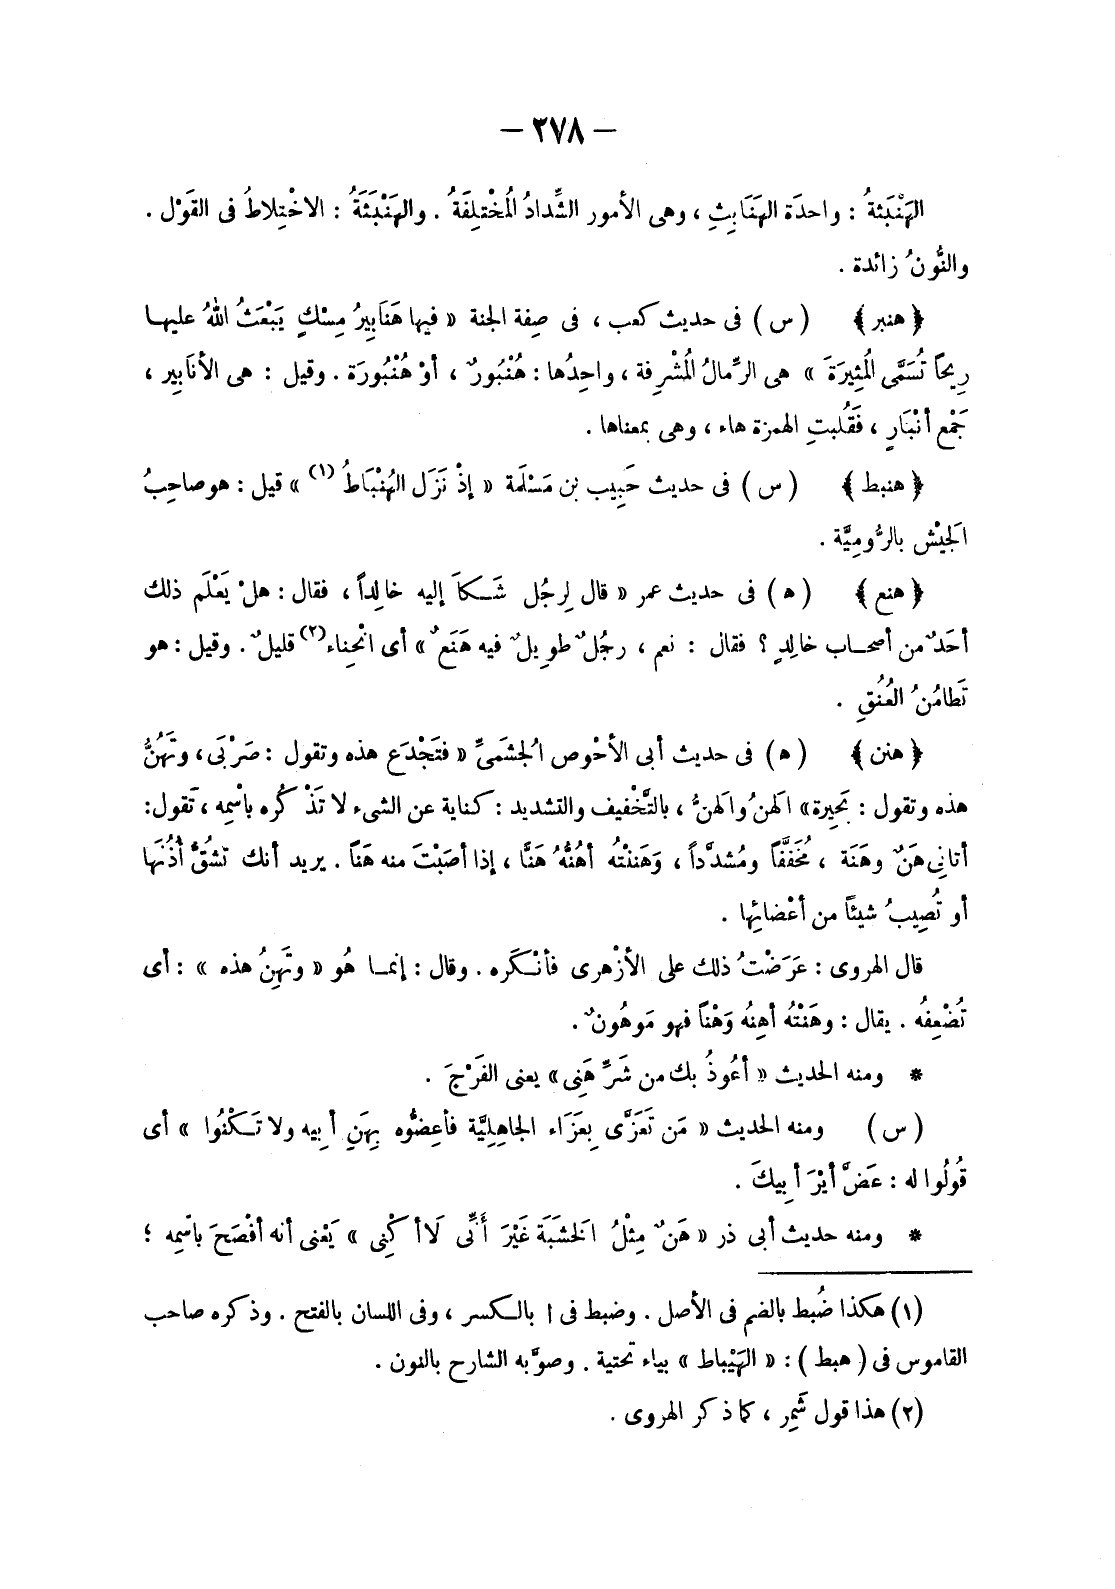 — ٢٧٨ —
الهَنْبَثةُ : واحدَة الهَنَابِثِ ، وهى الأمور الشِّدادُ المُخْتلِفَةُ . والهَنْبَثَةُ : الاخْتِلاطُ فى القوْل .
والنُّونُ زائدة .
﴿ هنبر ﴾ ( س ) فى حديث كعب ، فى صِفة الجنة « فيها هَنَابِيرُ مِسْكٍ يَبْعَثُ اللهُ عليها
رِيحًا تُسَمَّى المُثِيرَةَ » هى الرِّمالُ المُشْرِفة ، واحِدُها : هُنْبُورٌ ، أوْ هُنْبُورَة . وقيل : هى الأنَابِير ،
جَمْع أنْبَارٍ ، فَقُلبتِ الهمزة هاء ، وهى بمعناها .
﴿ هنبط ﴾ ( س ) فى حديث حَبِيب بن مَسْلَمَة « إذْ نَزَل الهُنْبَاطُ (١) » قيل : هو صاحِبُ
الجَيْش بالرُّومِيَّة .
﴿ هنع ﴾ ( ه ) فى حديث عمر « قال لِرجُل شَكاَ إليه خالِداً ، فقال : هلْ يَعْلَم ذلك
أحَدٌ من أصحاب خالِدٍ ؟ فقال : نعم ، رجُلٌ طويلٌ فيه هَنَعٌ » أى انْحِناء (٢) قليلٌ . وقيل : هو
تَطامُنُ العُنُقِ .
﴿ هنن ﴾ ( ه ) فى حديث أبى الأحْوص الجُشَمىِّ « فتَجْدَع هذه وتقول : صَرْبَى ، وتَهُنُّ
هذه وتقول : بَحِيرة » الهَنُ والهَنُّ ، بالتَّخْفيف والتشديد : كناية عن الشىء لا تَذْكُره باسْمِه ، تقول :
أتانى هَنٌ وهَنَة ، مُخَفَّفًا ومُشدَّداً ، وَهَنَنْتُه أهُنُّهُ هَنًّا ، إذا أصَبْتَ منه هَنًا . يريد أنك تشُقُّ أُذُنَها
أو تُصِيبُ شيئاً من أعْضائِها .
قال الهروى : عَرَضْتُ ذلك على الأزْهرى فأنْكَره . وقال : إنما هُو « وتَهِنُ هذه » : أى
تُضْعِفُه . يقال : وهَنْتُه أهِنُه وَهْناً فهو مَوهُونٌ .
* ومنه الحديث « أعُوذُ بك من شَرِّ هَنِى » يعنى الفَرْجَ .
( س ) ومنه الحديث « مَن تَعَزَّى بِعَزَاء الجاهِلِيَّة فأعِضُّوه بِهَنِ أبيه ولا تَكْنُوا » أى
قُولُوا له : عَضَّ أيْرَ أبِيكَ .
* ومنه حديث أبى ذر « هَنٌ مِثْلُ الخَشَبَة غَيْرَ أَنِّى لاَ أكْنِى » يَعْنى أنه أفْصَحَ باسْمِه ؛
(١) هكذا ضُبط بالضم فى الأصل . وضبط فى ا بالكسر ، وفى اللسان بالفتح . وذكره صاحب
القاموس فى ( هبط ) : « الهَيْباط » بياء تحتية . وصوَّبه الشارح بالنون .
(٢) هذا قول شَمِر ، كما ذكر الهروى .